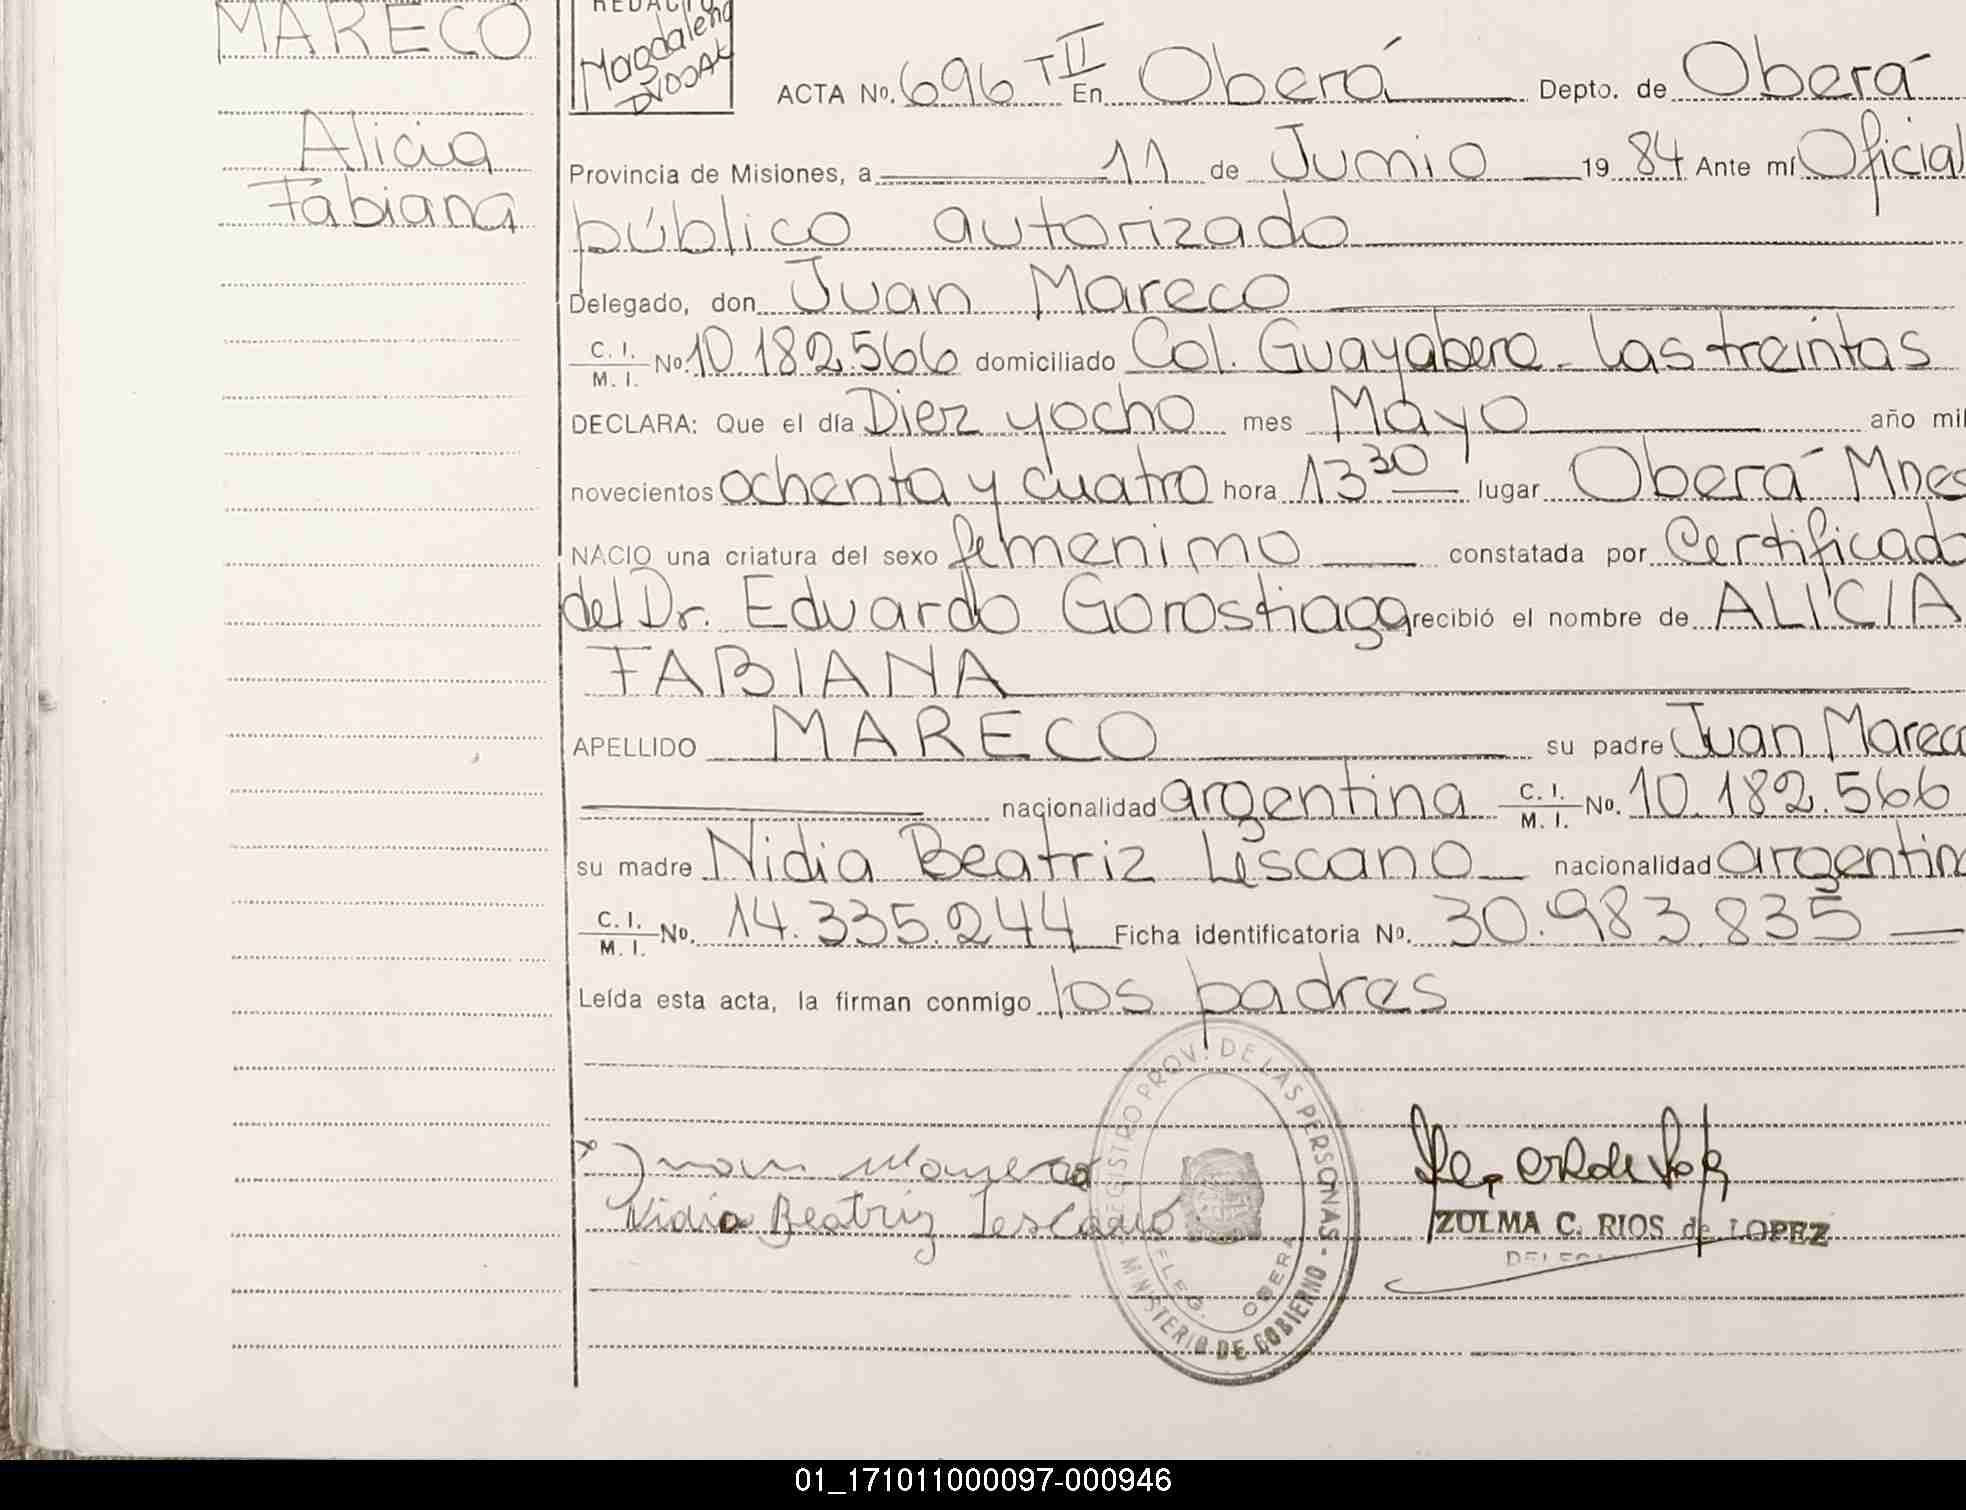 MARECO
Alicia
Fabiana
REDACTO
Magdalena
ACTA No. 696 T II En Oberá Depto. de Oberá
Provincia de Misiones, a 11 de Junio 1984 Ante mí Oficial
público autorizado
Delegado, don Juan Mareco
C. I. / M. I. No. 10.182.566 domiciliado Col. Guayabera - Las treintas
DECLARA: Que el día Diez y ocho mes Mayo año mil
novecientos ochenta y cuatro hora 13 30 lugar Oberá Mnes
NACIO una criatura del sexo femenimo constatada por Certificado
del Dr. Eduardo Gorostiaga recibió el nombre de ALICIA
FABIANA
APELLIDO MARECO su padre Juan Mareco
nacionalidad argentina C. I. / M. I. No. 10.182.566
su madre Nidia Beatriz Lescano nacionalidad argentina
C. I. / M. I. No. 14.335.244 Ficha identificatoria No. 30.983.835
Leída esta acta, la firman conmigo los padres
REGISTRO PROV. DE LAS PERSONAS - MINISTERIO DE GOBIERNO
DELEG. OBERA
x Juan Mareco
Nidia Beatriz Lescano
ZULMA C. RIOS de LOPEZ
01_171011000097-000946